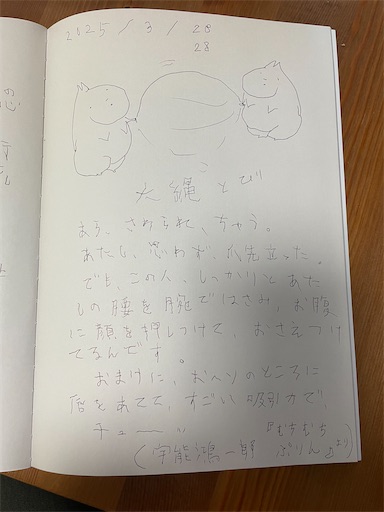 2025/3/28
28
大縄とび
あら、さめられて、ちゃう。
あたし、思わず、爪先立った。
でも、この人、しっかりとあた
しの腰を腕ではさみ、お腹
に顔を押しつけて、おさえつけ
てるんです。
おまけに、おへソのところに
唇をあてて、すごい吸引力で、
チューッ
(宇能鴻一郎『むちむちぷりん』より)